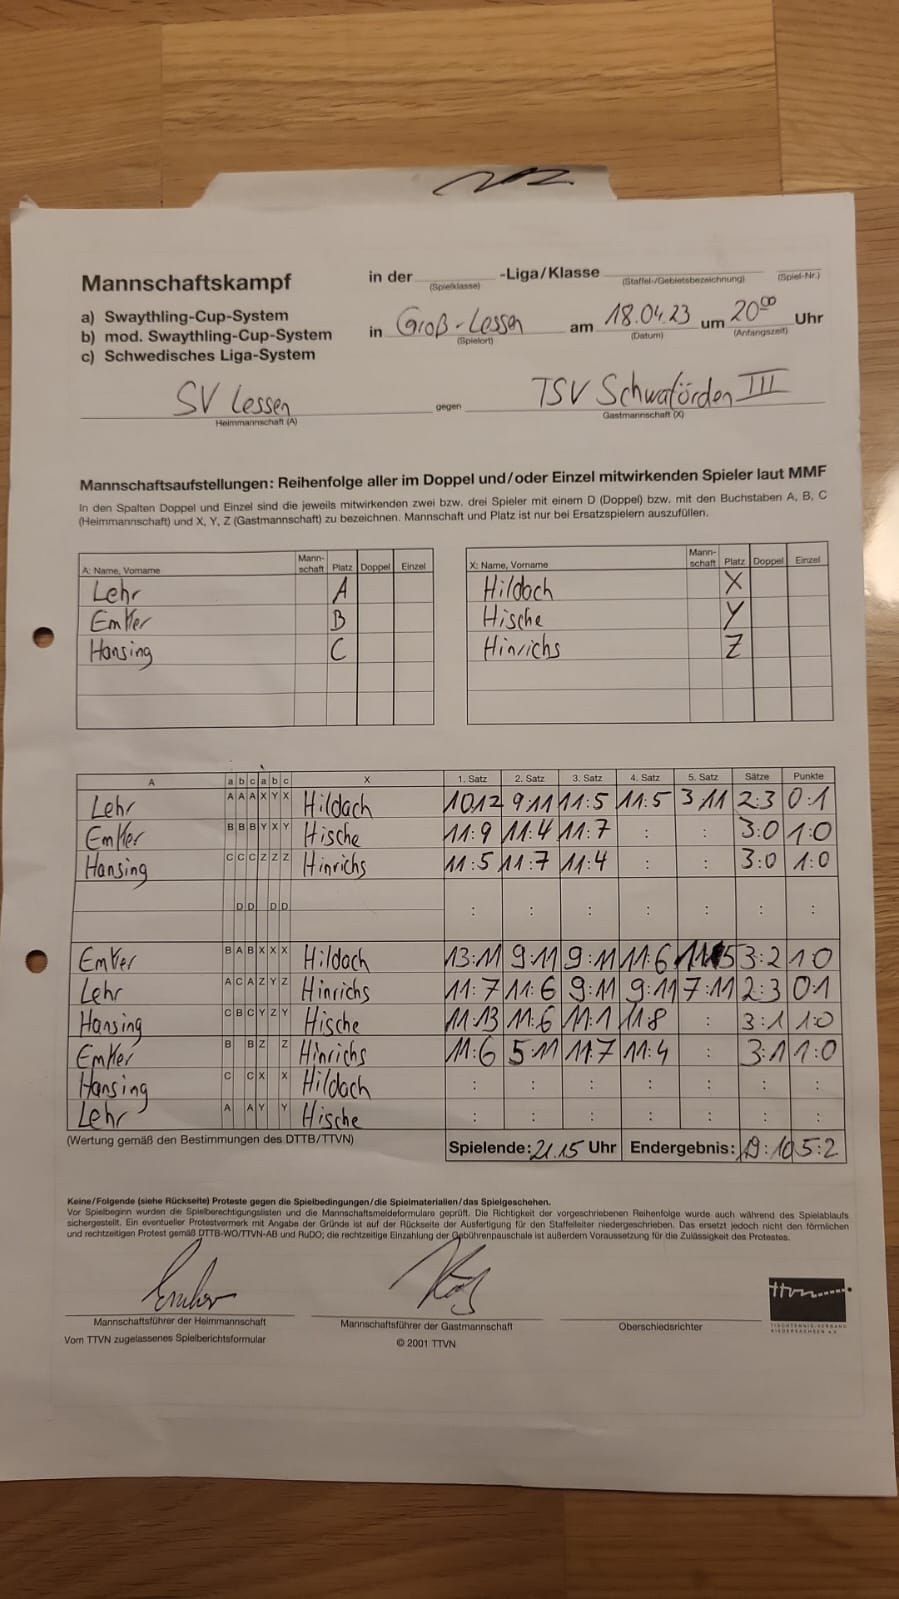 Mannschaftskampf
in der -Liga/Klasse
(Spielklasse) (Staffel-/Gebietsbezeichnung) (Spiel-Nr.)
a) Swaythling-Cup-System
b) mod. Swaythling-Cup-System
c) Schwedisches Liga-System
in Groß-Lessen am 18.04.23 um 20⁰⁰ Uhr
(Spielort) (Datum) (Anfangszeit)
SV Lessen gegen TSV Schwaförden III
Heimmannschaft (A) Gastmannschaft (X)
Mannschaftsaufstellungen: Reihenfolge aller im Doppel und/oder Einzel mitwirkenden Spieler laut MMF
In den Spalten Doppel und Einzel sind die jeweils mitwirkenden zwei bzw. drei Spieler mit einem D (Doppel) bzw. mit den Buchstaben A, B, C
(Heimmannschaft) und X, Y, Z (Gastmannschaft) zu bezeichnen. Mannschaft und Platz ist nur bei Ersatzspielern auszufüllen.
A: Name, Vorname Mann-schaft Platz Doppel Einzel
Lehr A
Emker B
Hansing C
X: Name, Vorname Mann-schaft Platz Doppel Einzel
Hildach X
Hische Y
Hinrichs Z
A a b c a b c X 1. Satz 2. Satz 3. Satz 4. Satz 5. Satz Sätze Punkte
Lehr A A A X Y X Hildach 10 12 9:11 11:5 11:5 3 11 2:3 0:1
Emker B B B Y X Y Hische 11:9 11:4 11:7 : : 3:0 1:0
Hansing C C C Z Z Z Hinrichs 11:5 11:7 11:4 : : 3:0 1:0
D D D D : : : : : : :
Emker B A B X X X Hildach 13:11 9:11 9:11 11:6 11 5 3:2 1 0
Lehr A C A Z Y Z Hinrichs 11:7 11:6 9:11 9:11 7:11 2:3 0 1
Hansing C B C Y Z Y Hische 11:13 11:6 11:1 11 8 : 3:1 1:0
Emker B B Z Z Hinrichs 11:6 5:11 11 7 11:4 : 3:1 1:0
Hansing C C X X Hildach : : : : : : :
Lehr A A Y Y Hische : : : : : : :
(Wertung gemäß den Bestimmungen des DTTB/TTVN) Spielende: 21.15 Uhr Endergebnis: 19:10 5:2
Keine/Folgende (siehe Rückseite) Proteste gegen die Spielbedingungen/die Spielmaterialien/das Spielgeschehen.
Vor Spielbeginn wurden die Spielberechtigungslisten und die Mannschaftsmeldeformulare geprüft. Die Richtigkeit der vorgeschriebenen Reihenfolge wurde auch während des Spielablaufs
sichergestellt. Ein eventueller Protestvermerk mit Angabe der Gründe ist auf der Rückseite der Ausfertigung für den Staffelleiter niedergeschrieben. Das ersetzt jedoch nicht den förmlichen
und rechtzeitigen Protest gemäß DTTB-WO/TTVN-AB und RuDO; die rechtzeitige Einzahlung der Gebührenpauschale ist außerdem Voraussetzung für die Zulässigkeit des Protestes.
Mannschaftsführer der Heimmannschaft Mannschaftsführer der Gastmannschaft Oberschiedsrichter
Vom TTVN zugelassenes Spielberichtsformular © 2001 TTVN
ttvn
TISCHTENNIS-VERBAND
NIEDERSACHSEN e.V.